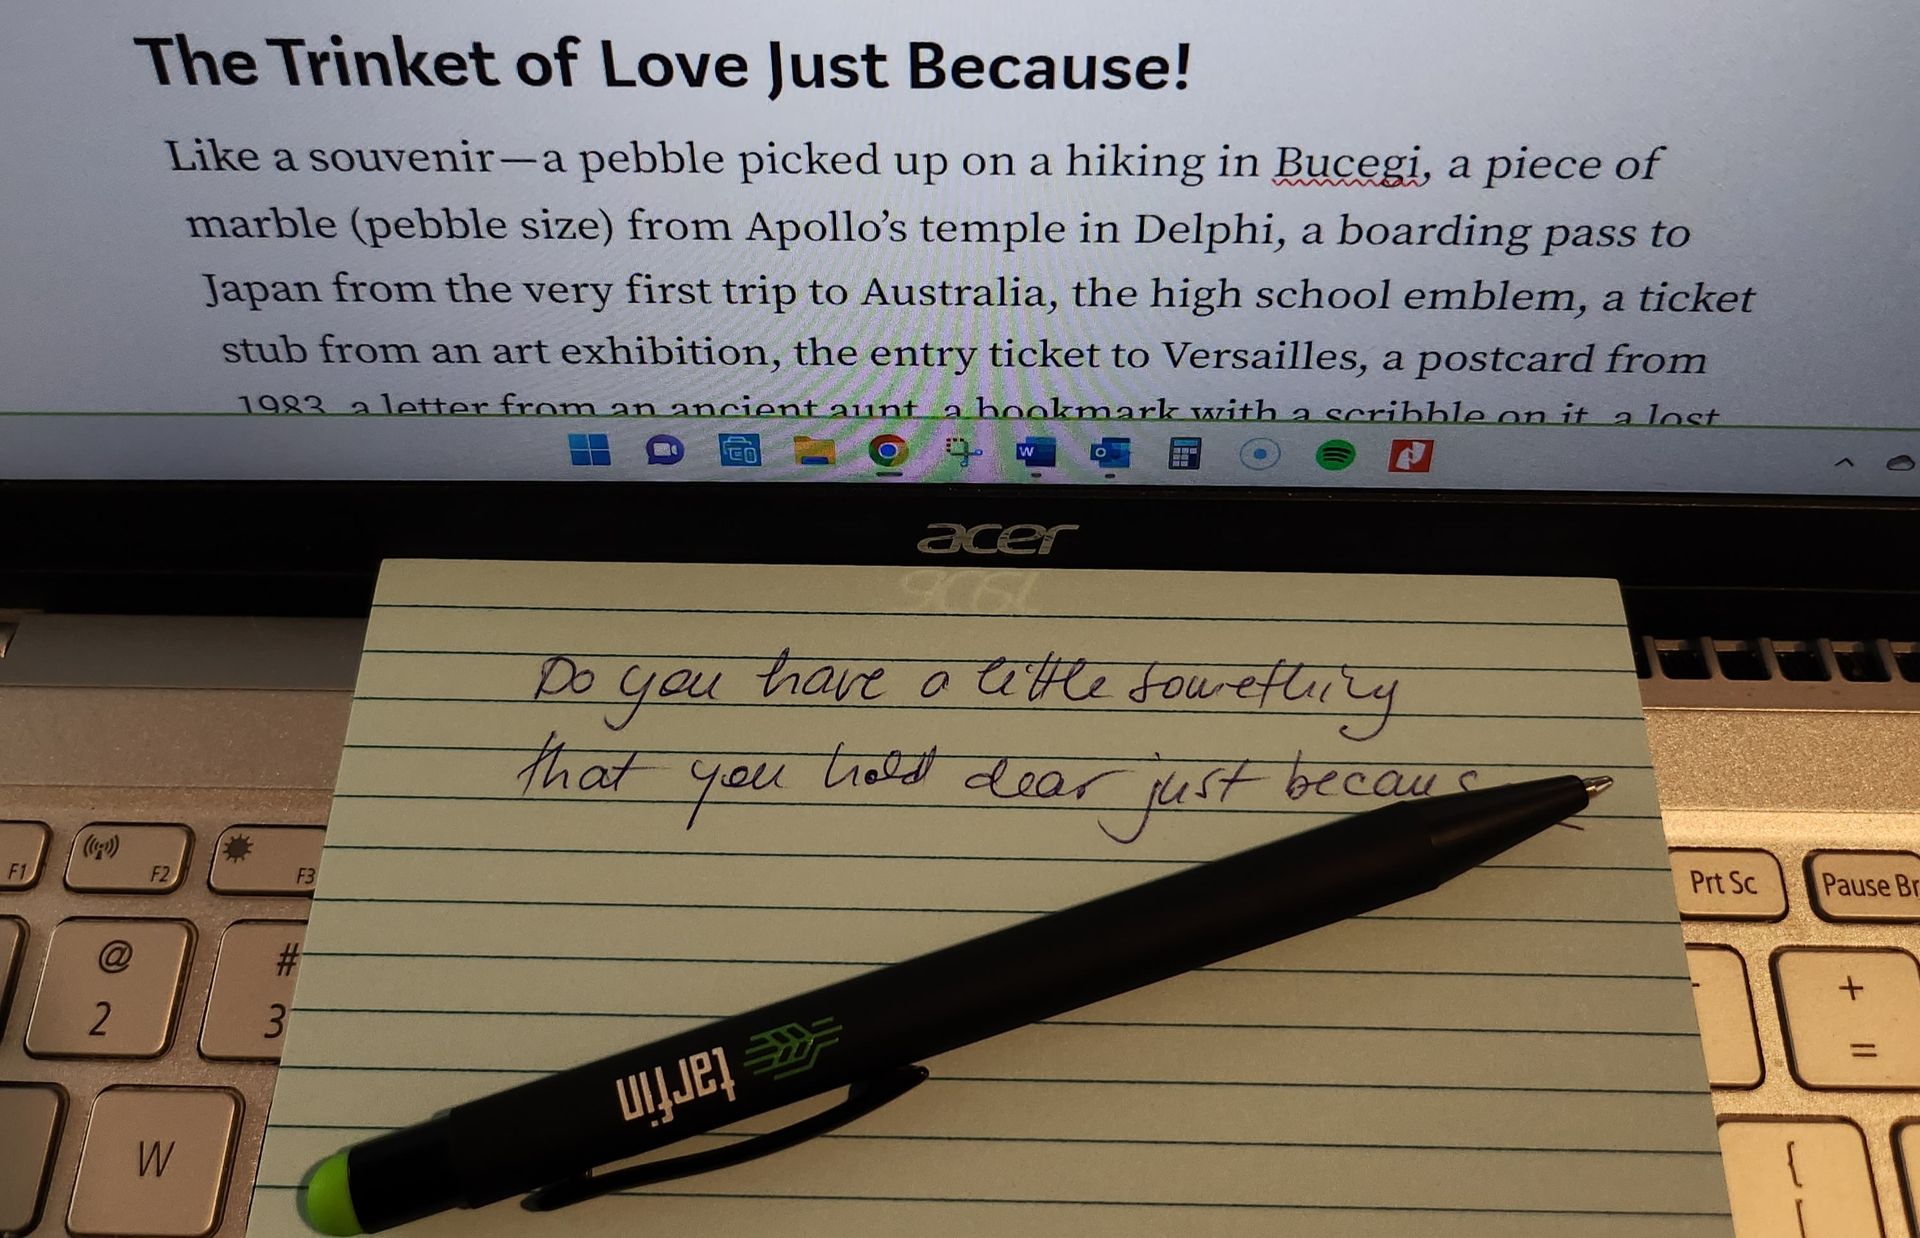 The Trinket of Love Just Because!
Like a souvenir—a pebble picked up on a hiking in Bucegi, a piece of
marble (pebble size) from Apollo’s temple in Delphi, a boarding pass to
Japan from the very first trip to Australia, the high school emblem, a ticket
stub from an art exhibition, the entry ticket to Versailles, a postcard from
1983, a letter from an ancient aunt, a bookmark with a scribble on it, a lost
acer
Do you have a little something
that you hold dear just becaus
F1 F2 F3 Prt Sc Pause Br
@ # +
2 3 - =
W {
[
tarfin